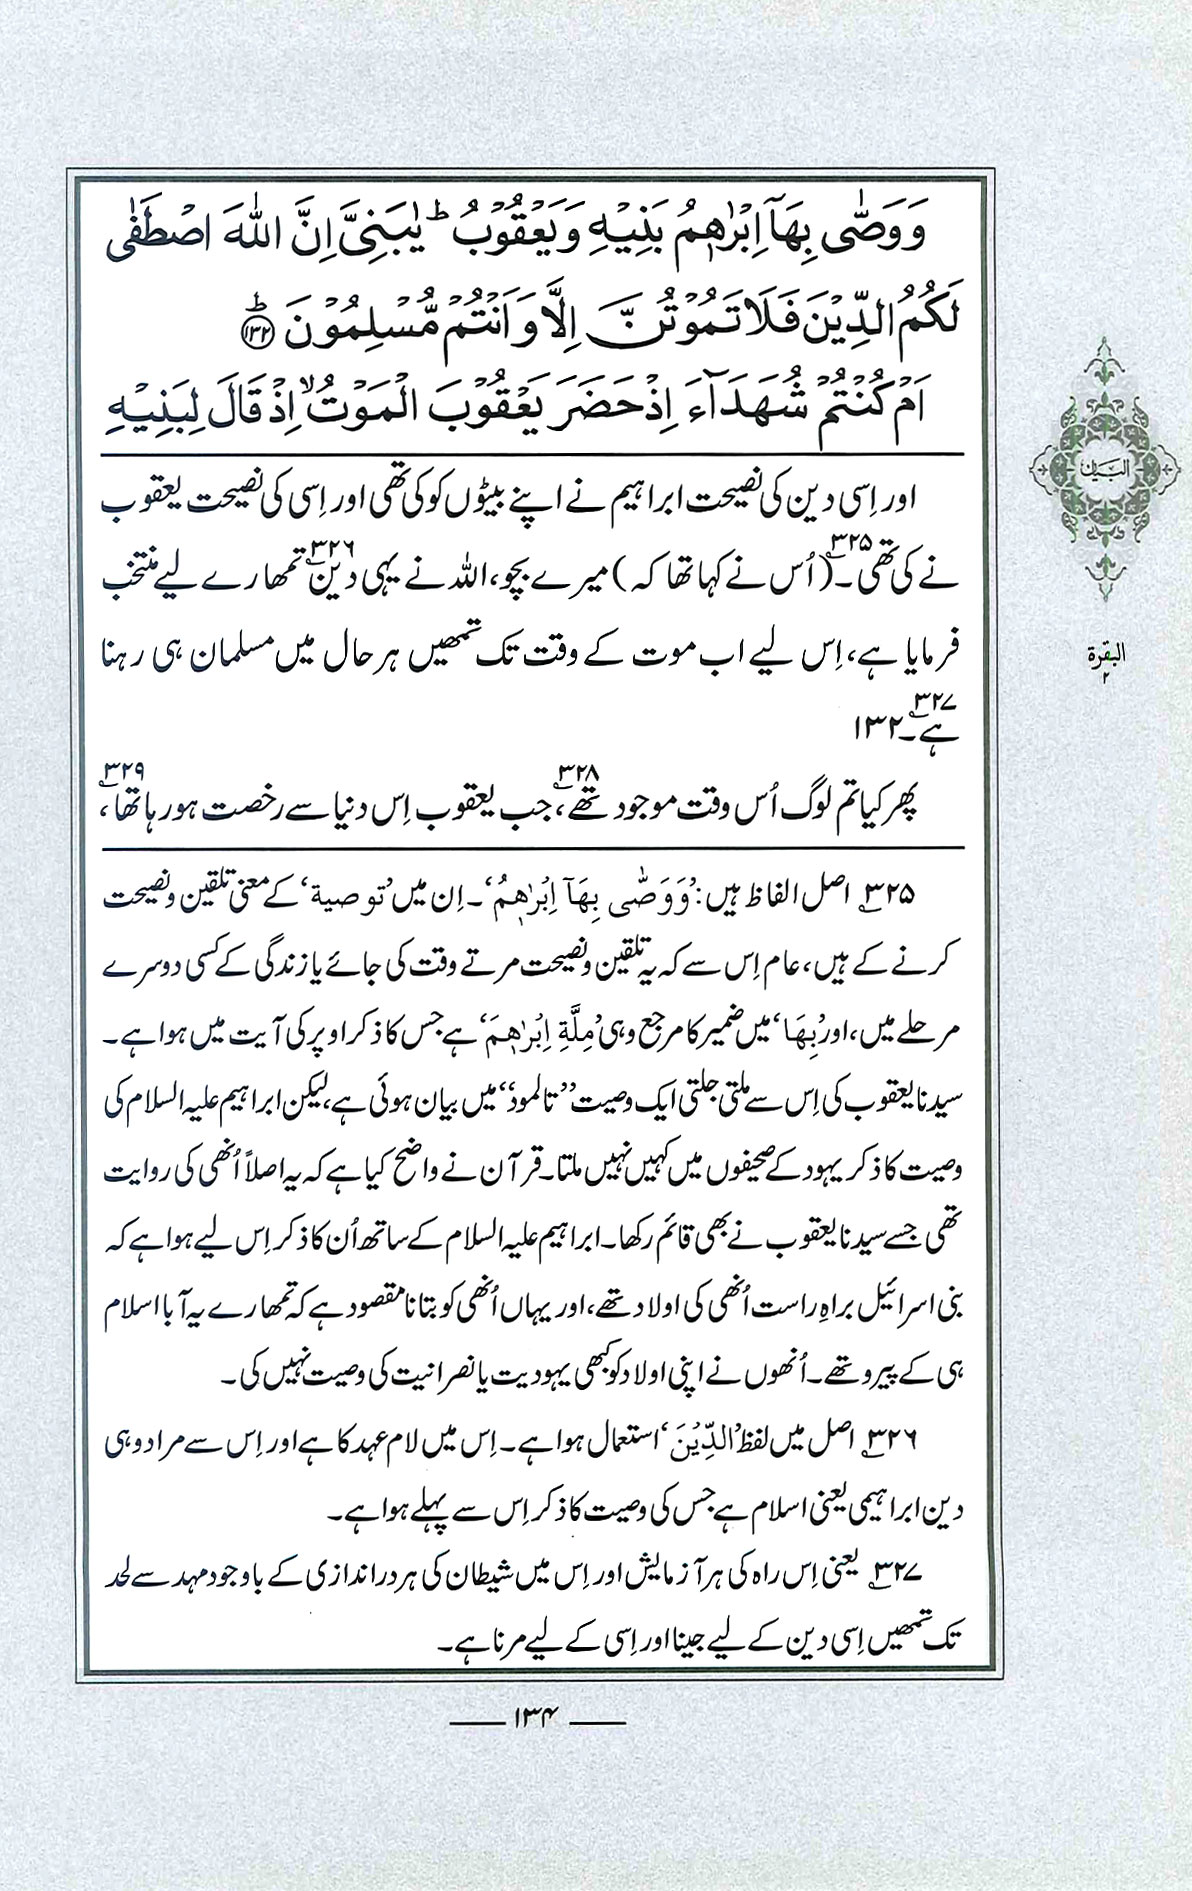 وَوَصّٰى بِهَآ اِبْرٰهٖمُ بَنِيْهِ وَيَعْقُوْبُ ؕ يٰبَنِيَّ اِنَّ اللّٰهَ اصْطَفٰى
لَكُمُ الدِّيْنَ فَلَا تَمُوْتُنَّ اِلَّا وَاَنْتُمْ مُّسْلِمُوْنَ ؕ ﴿۱۳۲﴾
اَمْ كُنْتُمْ شُهَدَآءَ اِذْ حَضَرَ يَعْقُوْبَ الْمَوْتُ ۙ اِذْ قَالَ لِبَنِيْهِ
اور اِسی دین کی نصیحت ابراہیم نے اپنے بیٹوں کو کی تھی اور اِسی کی نصیحت یعقوب
نے کی تھی۔۳۲۵ (اُس نے کہا تھا کہ) میرے بچو، اللہ نے یہی دین۳۲۶ تمھارے لیے منتخب
فرمایا ہے، اِس لیے اب موت کے وقت تک تمھیں ہر حال میں مسلمان ہی رہنا
ہے۔۳۲۷ ۱۳۲
پھر کیا تم لوگ اُس وقت موجود تھے،۳۲۸ جب یعقوب اِس دنیا سے رخصت ہو رہا تھا،۳۲۹
۳۲۵؎ اصل الفاظ ہیں: ’وَوَصّٰى بِهَآ اِبْرٰهٖمُ‘۔ اِن میں ’توصیة‘ کے معنی تلقین و نصیحت
کرنے کے ہیں، عام اِس سے کہ یہ تلقین و نصیحت مرتے وقت کی جائے یا زندگی کے کسی دوسرے
مرحلے میں، اور ’بِهَا‘ میں ضمیر کا مرجع وہی ’مِلَّةِ اِبْرٰهٖمَ‘ ہے جس کا ذکر اوپر کی آیت میں ہوا ہے۔
سیدنا یعقوب کی اِس سے ملتی جلتی ایک وصیت ’’تالمود‘‘ میں بیان ہوئی ہے، لیکن ابراہیم علیہ السلام کی
وصیت کا ذکر یہود کے صحیفوں میں کہیں نہیں ملتا۔ قرآن نے واضح کیا ہے کہ یہ اصلاً اُنھی کی روایت
تھی جسے سیدنا یعقوب نے بھی قائم رکھا۔ ابراہیم علیہ السلام کے ساتھ اُن کا ذکر اِس لیے ہوا ہے کہ
بنی اسرائیل براہِ راست اُنھی کی اولاد تھے، اور یہاں اُنھی کو بتانا مقصود ہے کہ تمھارے یہ آبا اسلام
ہی کے پیرو تھے۔ اُنھوں نے اپنی اولاد کو کبھی یہودیت یا نصرانیت کی وصیت نہیں کی۔
۳۲۶؎ اصل میں لفظ ’الدِّيْنَ‘ استعمال ہوا ہے۔ اِس میں لام عہد کا ہے اور اِس سے مراد وہی
دین ابراہیمی یعنی اسلام ہے جس کی وصیت کا ذکر اِس سے پہلے ہوا ہے۔
۳۲۷؎ یعنی اِس راہ کی ہر آزمایش اور اِس میں شیطان کی ہر دراندازی کے باوجود مہد سے لحد
تک تمھیں اِسی دین کے لیے جینا اور اِسی کے لیے مرنا ہے۔
۱۳۴
البیان
البقرة
۲